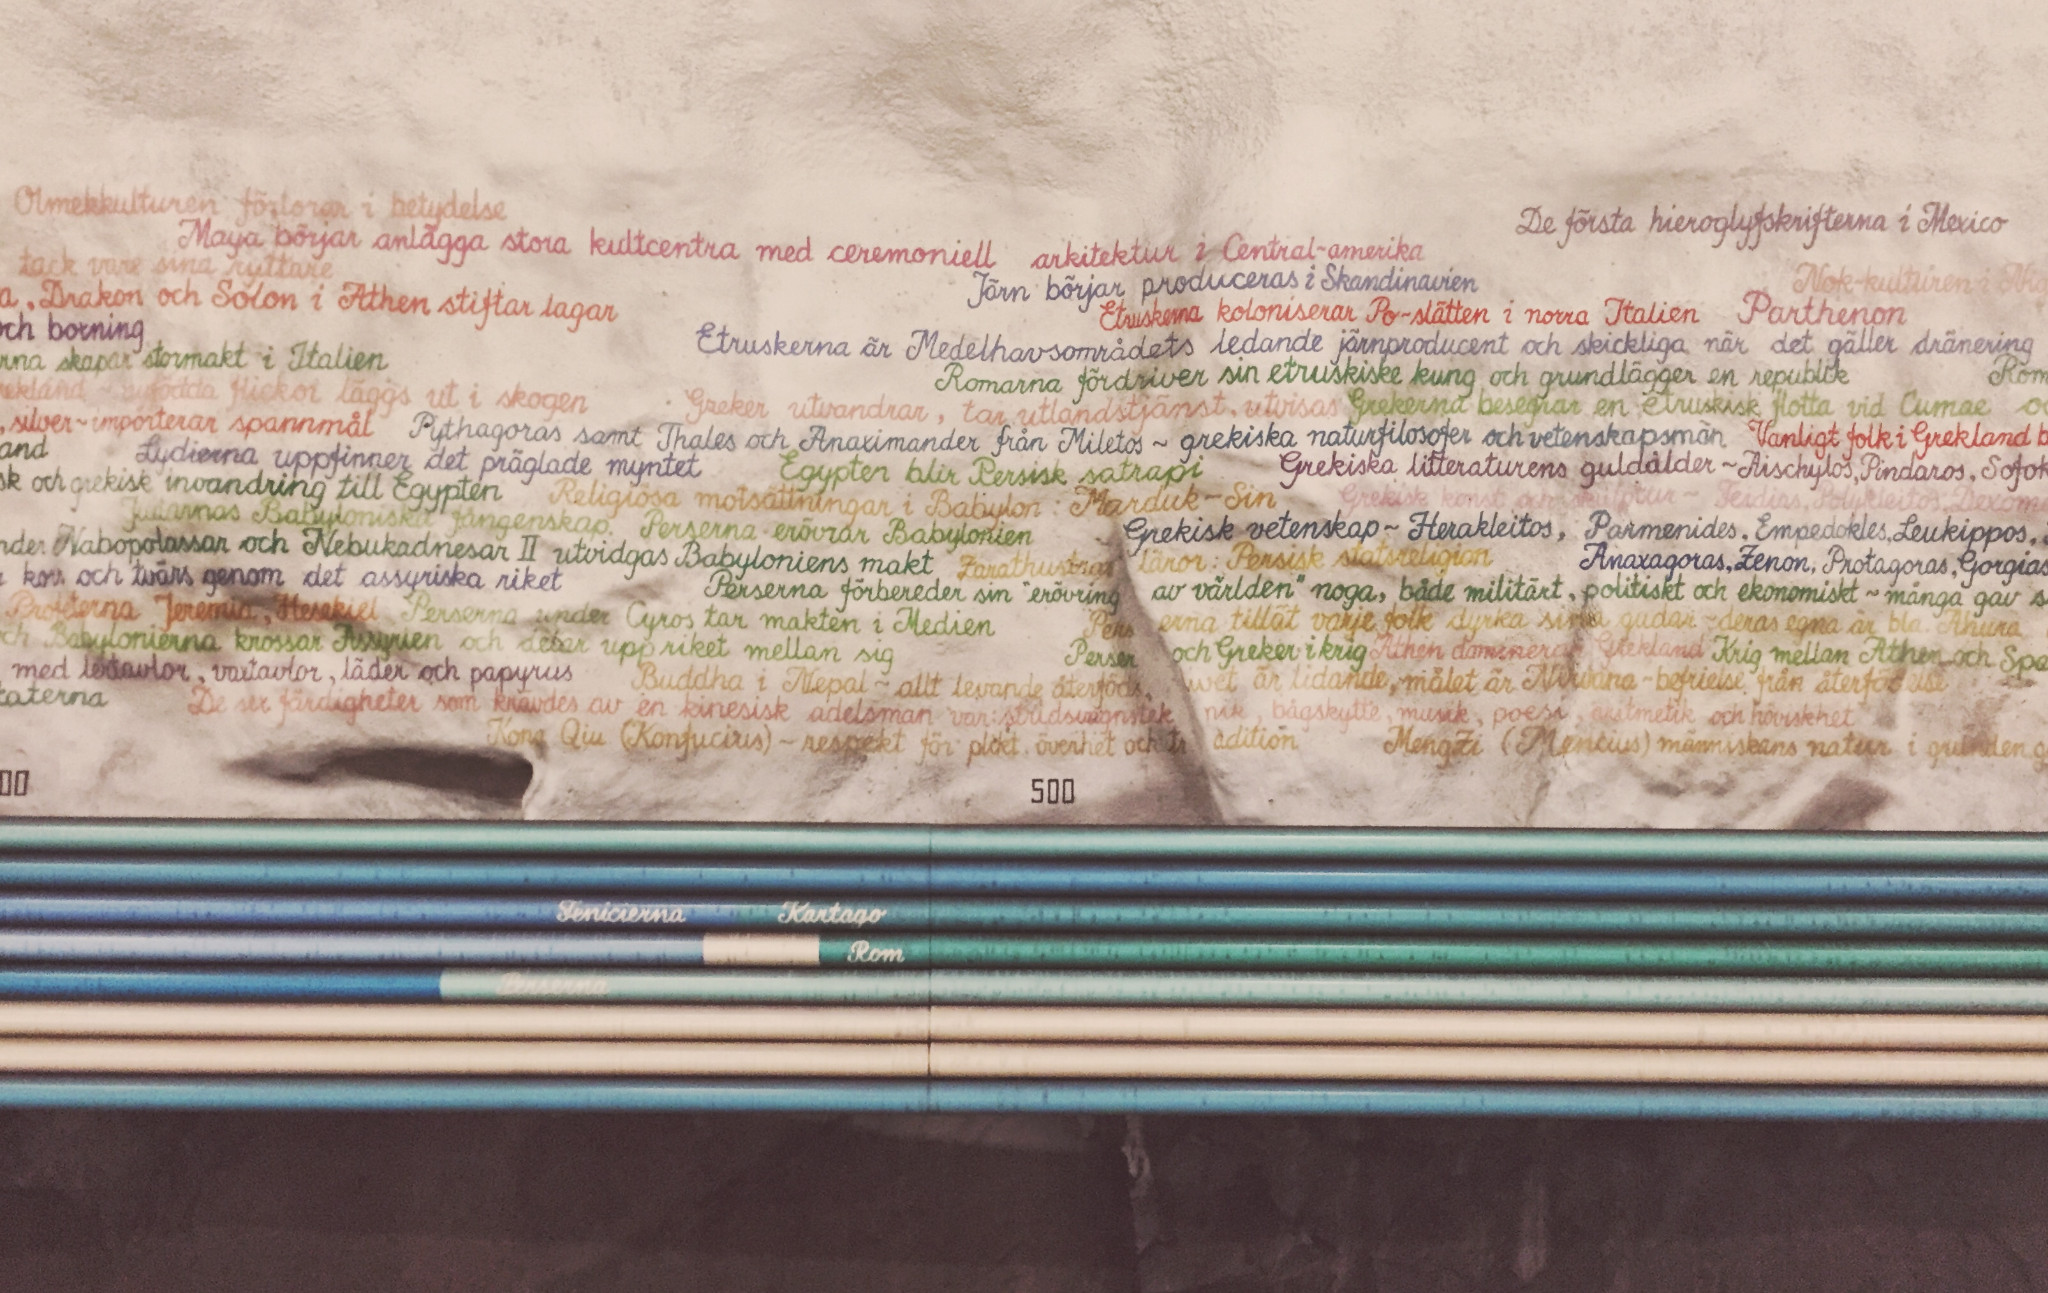 Olmekkulturen förlorar i betydelse
De första hieroglyfskrifterna i Mexico
Maya börjar anlägga stora kultcentra med ceremoniell arkitektur i Central-amerika
tack vare sina ryttare
Järn börjar produceras i Skandinavien
Nok-kulturen i
a, Drakon och Solon i Athen stiftar lagar
Etruskerna koloniserar Po-slätten i norra Italien Parthenon
och borning
Etruskerna är Medelhavsområdets ledande järnproducent och skickliga när det gäller dränering
rna skapar stormakt i Italien
Romarna fördriver sin etruskiske kung och grundlägger en republik Rom
ekland - nyfödda flickor läggs ut i skogen Greker utvandrar, tar utlandstjänst, utvisas Grekerna besegrar en etruskisk flotta vid Cumae
, silver~importerar spannmål Pythagoras samt Thales och Anaximander från Miletos ~ grekiska naturfilosofer och vetenskapsmän Vanligt folk i Grekland b
and Lydierna uppfinner det präglade myntet Egypten blir Persisk satrapi Grekiska litteraturens guldålder ~ Aischylos, Pindaros, Sofok
sk och grekisk invandring till Egypten Religiösa motsättningar i Babylon: Marduk-Sin Grekisk konst och skulptur ~ Feidias, Polykleitos, Dexam
Judarnas Babyloniska fångenskap. Perserna erövrar Babylonien Grekisk vetenskap ~ Herakleitos, Parmenides, Empedokles, Leukippos,
nder Nabopolassar och Nebukadnesar II utvidgas Babyloniens makt Zarathustras läror: Persisk statsreligion Anaxagoras, Zenon, Protagoras, Gorgias
kors och tvärs genom det assyriska riket Perserna förbereder sin "erövring av världen" noga, både militärt, politiskt och ekonomiskt ~ många gav s
Profeterna Jeremia, Hesekiel Perserna under Cyros tar makten i Medien Perserna tillåt varje folk dyrka sina gudar - deras egna är bl.a. Ahura
och Babylonierna krossar Assyrien och delar upp riket mellan sig Perser och Greker i krig Athen dominerar Grekland Krig mellan Athen och Spa
med lertavlor, vaxtavlor, läder och papyrus Buddha i Nepal ~ allt levande återföds, livet är lidande, målet är Nirvana - befrielse från återfödelse
taterna De sex färdigheter som krävdes av en kinesisk adelsman var: stridsvagnsteknik, bågskytte, musik, poesi, aritmetik och höviskhet
Kong Qiu (Konfucius) ~ respekt för plikt, överhet och tradition Mengzi (Mencius) människans natur i grunden g
00
500
Fenicierna Kartago
Rom
Perserna